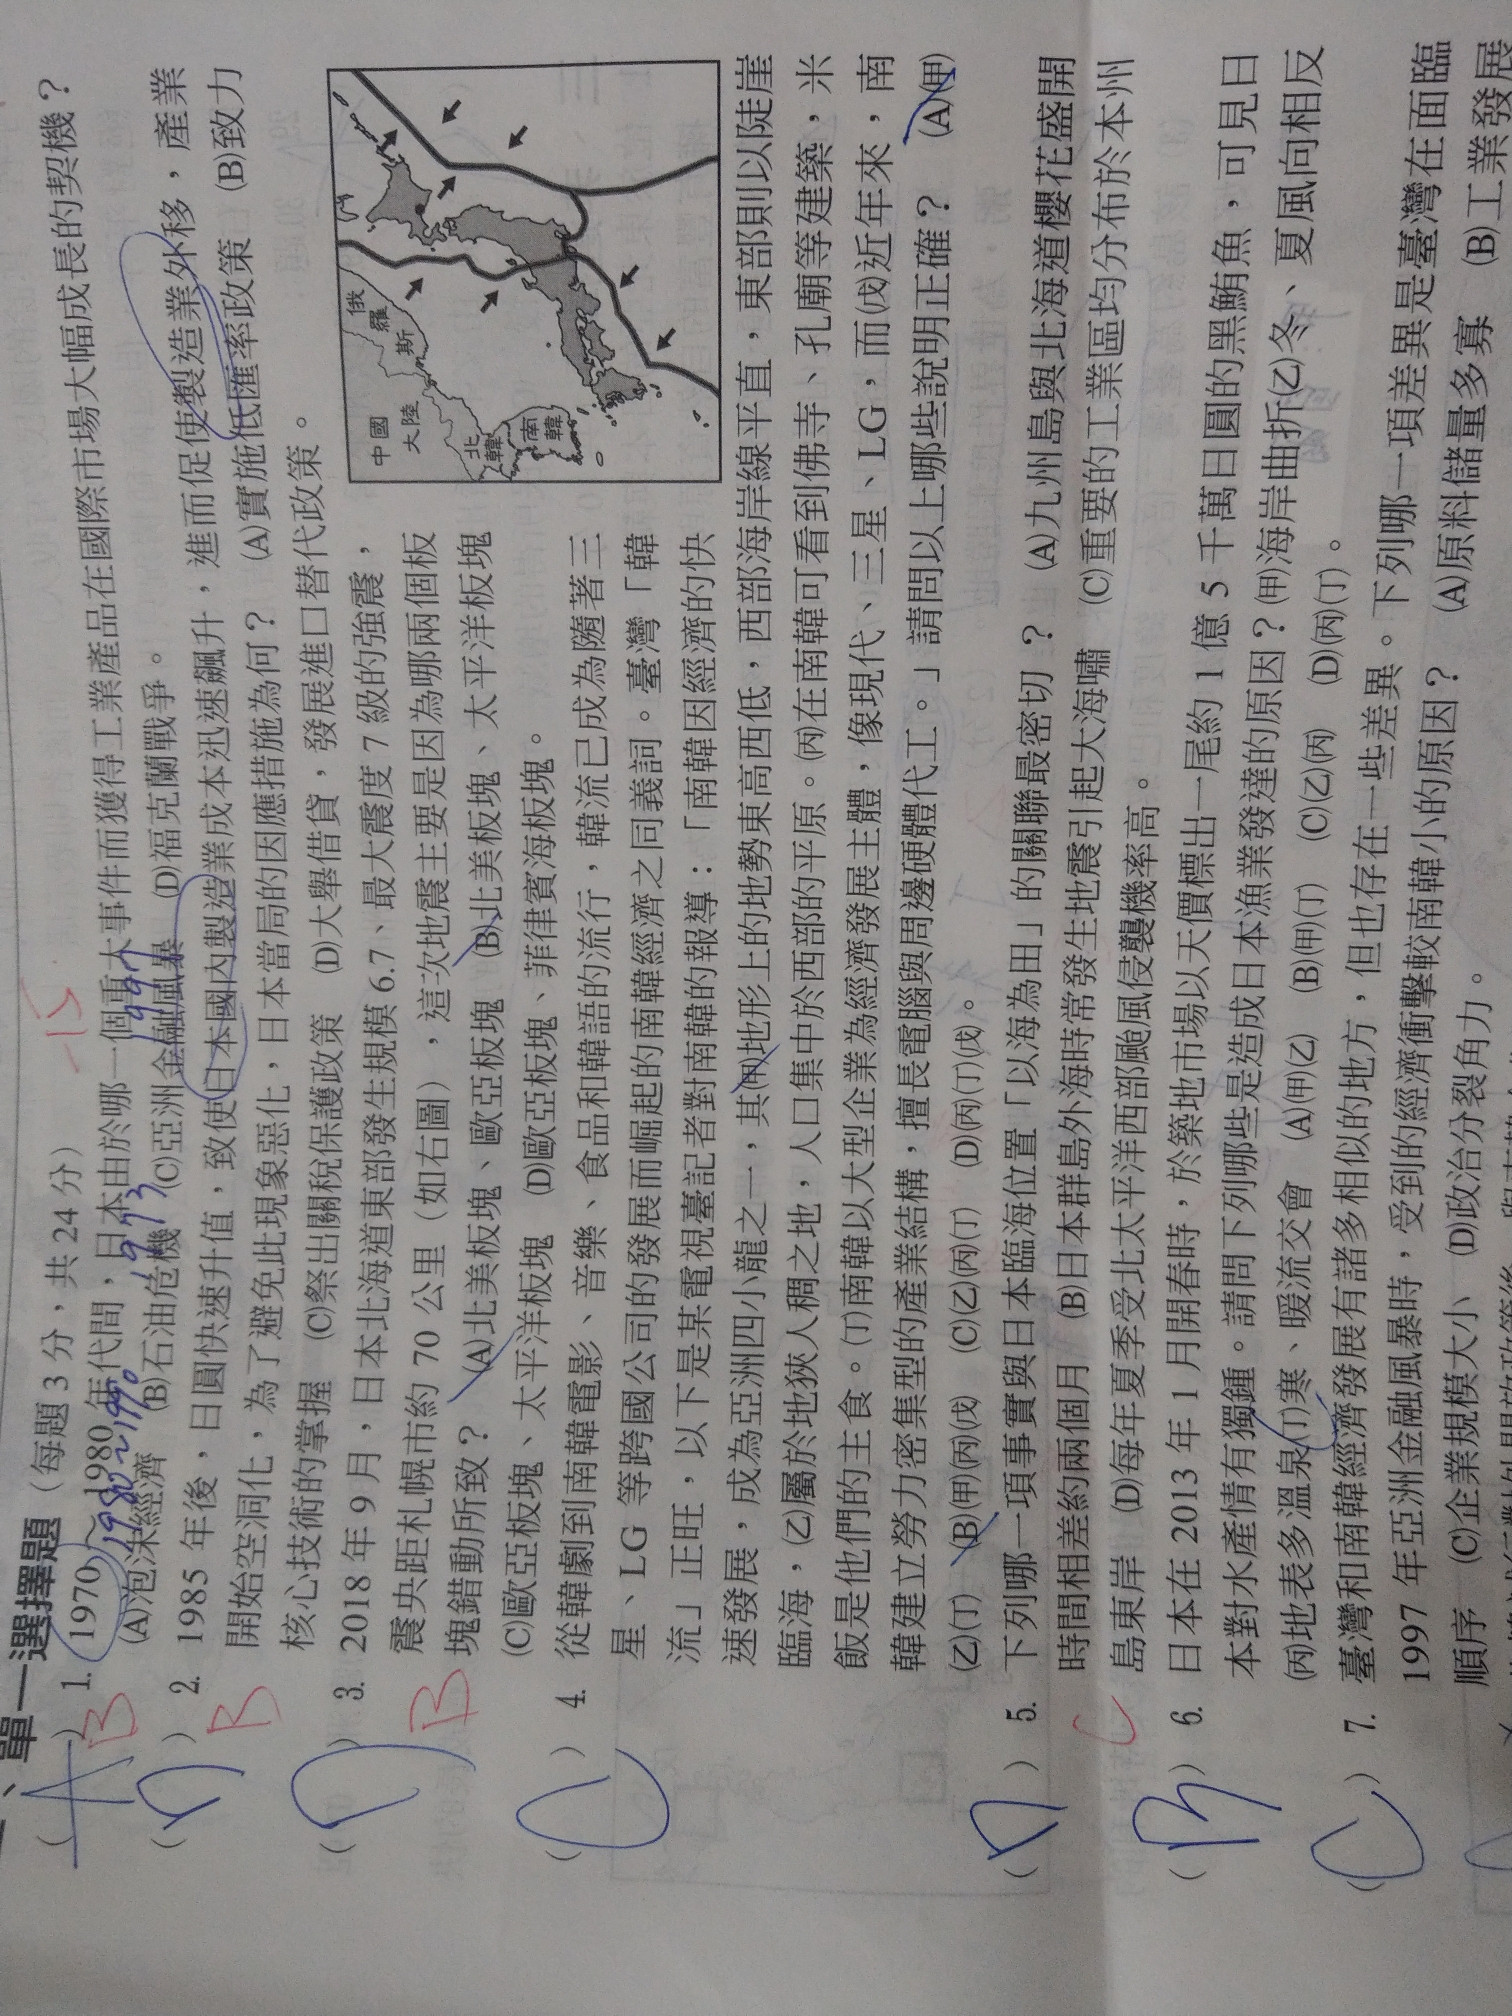 一、單一選擇題(每題 3 分,共 24 分)
-15
( A ) B 1. 1970~1980 年代間,日本由於哪一個重大事件而獲得工業產品在國際市場大幅成長的契機?
1980~1990 1973 1997
(A)泡沫經濟 (B)石油危機 (C)亞洲金融風暴 (D)福克蘭戰爭。
( D ) B 2. 1985 年後,日圓快速升值,致使日本國內製造業成本迅速飆升,進而促使製造業外移,產業
開始空洞化,為了避免此現象惡化,日本當局的因應措施為何? (A)實施低匯率政策 (B)致力
核心技術的掌握 (C)祭出關稅保護政策 (D)大舉借貸,發展進口替代政策。
( D ) B 3. 2018 年 9 月,日本北海道東部發生規模 6.7、最大震度 7 級的強震,
震央距札幌市約 70 公里(如右圖),這次地震主要是因為哪兩個板
塊錯動所致? (A)北美板塊、歐亞板塊 (B)北美板塊、太平洋板塊
(C)歐亞板塊、太平洋板塊 (D)歐亞板塊、菲律賓海板塊。
俄羅斯
中國大陸
北韓
南韓
( C ) 4. 從韓劇到南韓電影、音樂、食品和韓語的流行,韓流已成為隨著三
星、LG 等跨國公司的發展而崛起的南韓經濟之同義詞。臺灣「韓
流」正旺,以下是某電視臺記者對南韓的報導:「南韓因經濟的快
速發展,成為亞洲四小龍之一,其(甲)地形上的地勢東高西低,西部海岸線平直,東部則以陡崖
臨海,(乙)屬於地狹人稠之地,人口集中於西部的平原。(丙)在南韓可看到佛寺、孔廟等建築,米
飯是他們的主食。(丁)南韓以大型企業為經濟發展主體,像現代、三星、LG,而(戊)近年來,南
韓建立勞力密集型的產業結構,擅長電腦與周邊硬體代工。」請問以上哪些說明正確? (A)(甲)
(乙)(丁) (B)(甲)(丙)(戊) (C)(乙)(丙)(丁) (D)(丙)(丁)(戊)。
( D ) C 5. 下列哪一項事實與日本臨海位置「以海為田」的關聯最密切? (A)九州島與北海道櫻花盛開
時間相差約兩個月 (B)日本群島外海時常發生地震引起大海嘯 (C)重要的工業區均分布於本州
島東岸 (D)每年夏季受北太平洋西部颱風侵襲機率高。
( B ) 6. 日本在 2013 年 1 月開春時,於築地市場以天價標出一尾約 1 億 5 千萬日圓的黑鮪魚,可見日
本對水產情有獨鍾。請問下列哪些是造成日本漁業發達的原因?(甲)海岸曲折(乙)冬、夏風向相反
(丙)地表多溫泉(丁)寒、暖流交會 (A)(甲)(乙) (B)(甲)(丁) (C)(乙)(丙) (D)(丙)(丁)。
( C ) 7. 臺灣和南韓經濟發展有諸多相似的地方,但也存在一些差異。下列哪一項差異是臺灣在面臨
1997 年亞洲金融風暴時,受到的經濟衝擊較南韓小的原因? (A)原料儲量多寡 (B)工業發展
順序 (C)企業規模大小 (D)政治分裂角力。